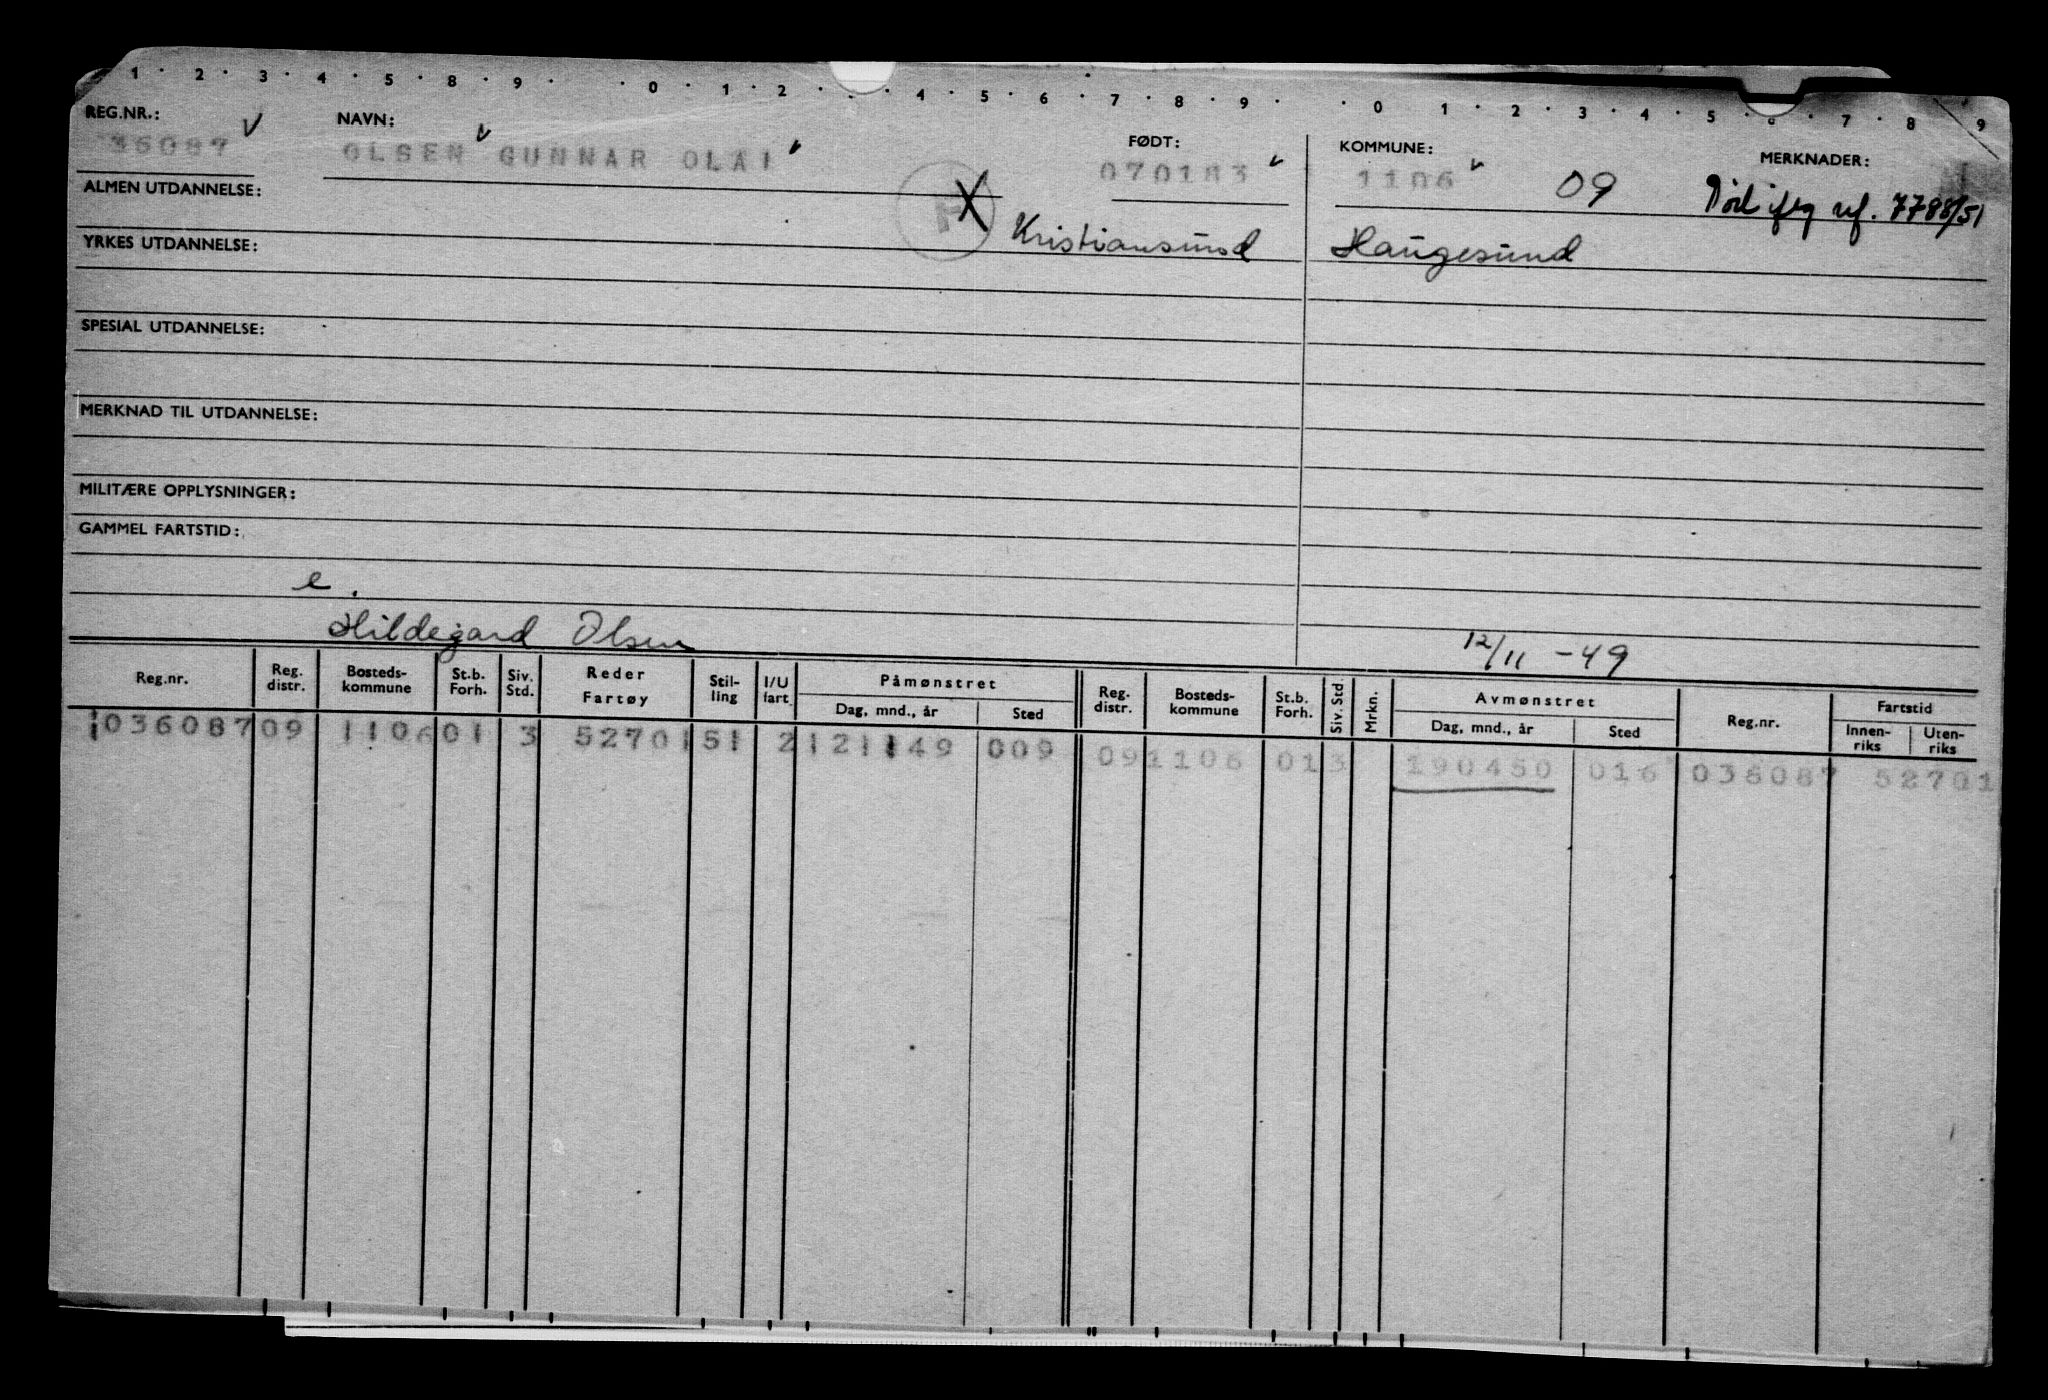 1 · 2 · 3 · 4 · 5 · 8 · 9 · · 0 · 1 · 2 · · 4 · 5 · 6 · 7 · 8 · 9 · · 0 · 1 · 2 · 3 · 4 · 5 · 6 · 7 · 8 · 9
REG.NR.: NAVN: FØDT: KOMMUNE: MERKNADER:
36087 OLSEN GUNNAR OLAI 070183 1106 09 Død 7788/51
ALMEN UTDANNELSE: H
YRKES UTDANNELSE: Kristiansund Haugesund
SPESIAL UTDANNELSE:
MERKNAD TIL UTDANNELSE:
MILITÆRE OPPLYSNINGER:
GAMMEL FARTSTID:
e.
Hildegard Olsen 12/11 -49
Reg.nr. Reg. distr. Bosteds-kommune St.b. Forh. Siv. Std. Reder Fartøy Stil-ling I/U fart Påmønstret Dag, mnd., år Sted Reg. distr. Bosteds-kommune St.b. Forh. Siv. Std. Mrkn. Avmønstret Dag, mnd., år Sted Reg.nr. Fartstid Innen-riks Uten-riks
1036087 09 1106 01 3 52701 51 2 121149 009 09 1106 01 3 190450 016 036087 52701